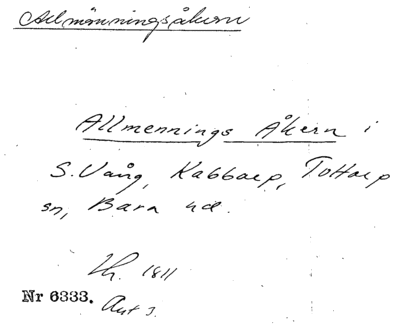 Allmänningsåkern
Allmennings Åkern i
S. Vång, Kabbarp, Tottarp
sn, Bara hd.
Lh. 1811
Nr 6333. Akt 3.